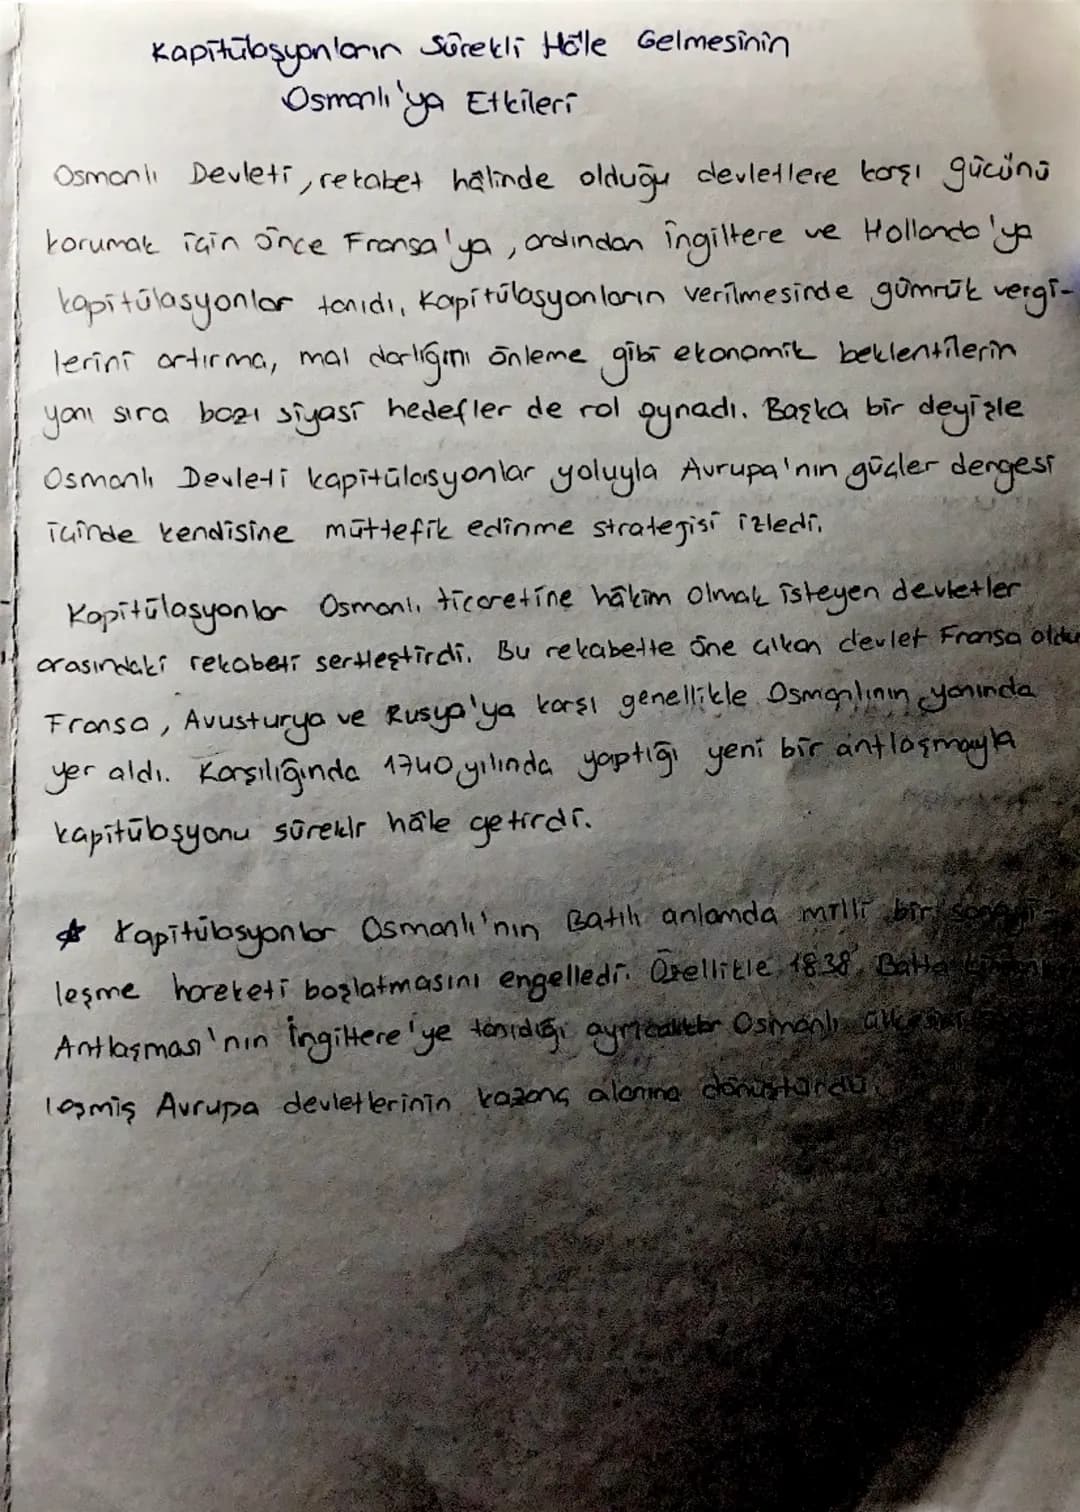 Kapitülasyonların Sürekli Hâle Gelmesinin
Osmanlı'ya Etkileri
Osmanlı Devleti, rekabet hâlinde olduğu devletlere karşı gücünü
korumak için önce Fransa'ya, ardından İngiltere ve Hollanda'ya
kapitülasyonlar tanıdı. Kapitülasyonların verilmesinde gümrük vergi-
lerini artırma, mal darlığını önleme gibi ekonomik beklentilerin
yanı sıra bazı siyasi hedefler de rol oynadı. Başka bir deyişle
Osmanlı Devleti kapitülasyonlar yoluyla Avrupa'nın güçler dengesi
içinde kendisine müttefik edinme stratejisi izledi.
Kapitülasyonlar Osmanlı ticaretine hâkim olmak isteyen devletler
arasındaki rekabeti sertleştirdi. Bu rekabette öne çıkan devlet Fransa oldu
Fransa, Avusturya ve Rusya'ya karşı genellikle Osmanlının yanında
yer aldı. Karşılığında 1740 yılında yaptığı yeni bir antlaşmayla
kapitülasyonu sürekli hâle getirdi.
Kapitülasyonlar Osmanlı'nın Batılı anlamda milli bir
leşme hareketi başlatmasını engelledi. Özellikle 1838 Balta
Antlaşması'nın İngiltere'ye tanıdığı ayrıcalıklar Osmanlı
leşmiş Avrupa devletlerinin kazanç alanına dönüştürdü.